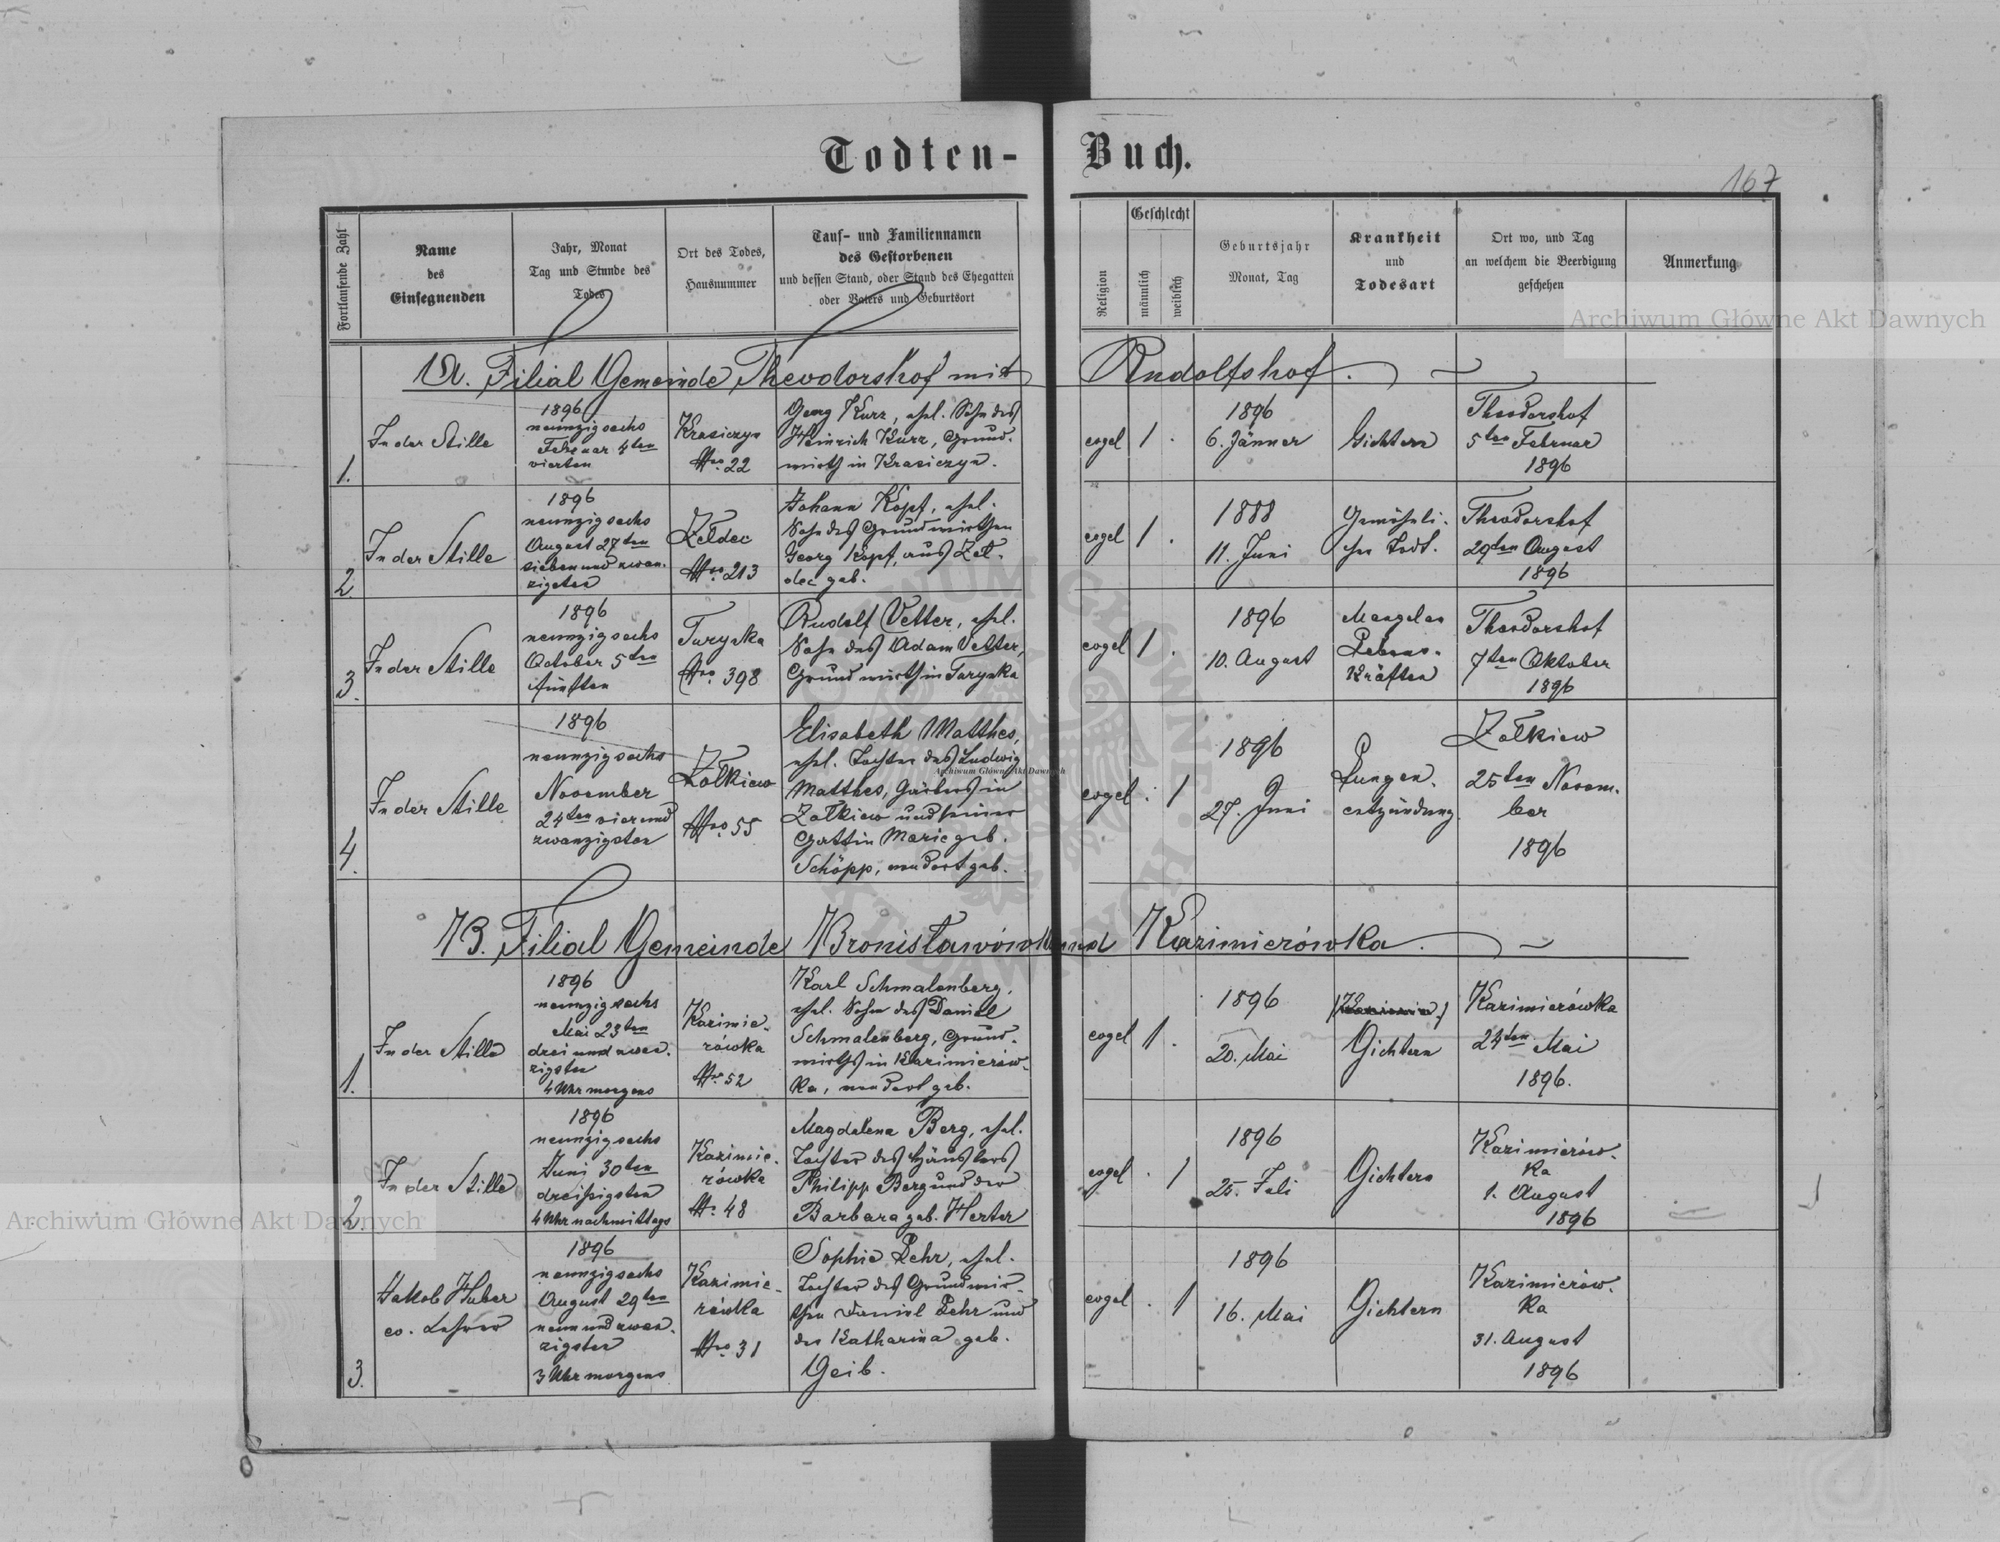 Todten- Buch.
167
Fortlaufende Zahl
Name
des
Einsegnenden
Jahr, Monat
Tag und Stunde des
Todes
Ort des Todes,
Hausnummer
Tauf- und Familiennamen
des Gestorbenen
und dessen Stand, oder Stand des Ehegatten
oder Vaters und Geburtsort
Religion
Geschlecht
männlich
weiblich
Geburtsjahr
Monat, Tag
Krankheit
und
Todesart
Ort wo, und Tag
an welchem die Beerdigung
geschehen
Anmerkung
Archiwum Główne Akt Dawnych
A. Filial Gemeinde Theodorshof mit Rudolfshof.
1.
In der Stille
1896
neunzigsechs
Februar 4ten
vierten
Krasiczyn
Nro. 22
Georg Kurz, ehel. Sohn des
Heinrich Kurz, Grund-
wirth in Krasiczyn.
evgel
1 .
1896
6. Jänner
Gichtern
Theodorshof
5ten Februar
1896
2.
In der Stille
1896
neunzigsechs
August 27ten
sieben und zwan-
zigsten
Żełdec
Nro. 213
Johann Kopf, ehel.
Sohn des Grundwirthen
Georg Kopf, aus Żeł-
dec geb.
evgel
1 .
1888
11. Juni
Gewöhnli-
cher Todt.
Theodorshof
29ten August
1896
3.
In der Stille
1896
neunzigsechs
October 5ten
fünften
Turynka
Nro. 398
Rudolf Vetter, ehel.
Sohn des Adam Vetter,
Grundwirth in Turynka
evgel
1 .
1896
10. August
Mangel an
Lebens-
Kräften
Theodorshof
7ten Oktober
1896
4.
In der Stille
1896
neunzigsechs
November
24ten vier und
zwanzigsten
Żołkiew
Nro 55
Elisabeth Matthes,
ehel. Tochter des Ludwig
Matthes, Gärbers in
Żołkiew und seiner
Gattin Marie geb.
Schöpp, von dort geb.
evgel
. 1
1896
27. Juni
Lungen-
entzündung
Żołkiew
25ten Novem-
ber
1896
Archiwum Główne Akt Dawnych
B. Filial Gemeinde Bronisławówka und Kazimierówka.
1.
In der Stille
1896
neunzigsechs
Mai 23ten
drei und zwan-
zigsten
4 Uhr morgens
Kazimie-
rówka
Nr. 52
Karl Schmalenberg,
ehel. Sohn des Daniel
Schmalenberg, Grund-
wirths in Kazimierów-
ka, von dort geb.
evgel
1 .
1896
20. Mai
Gichtern
Kazimierówka
24ten Mai
1896.
2.
In der Stille
1896
neunzigsechs
Juni 30ten
dreißigsten
4 Uhr nachmittags
Kazimie-
rówka
Nr. 48
Magdalena Berg, ehel.
Tochter des Häuslers
Philipp Berg und der
Barbara geb. Herter
evgel
. 1
1896
25. Juli
Gichtern
Kazimierów-
ka
1. August
1896
Archiwum Główne Akt Dawnych
3.
Jakob Huber
ev. Lehrer
1896
neunzigsechs
August 29ten
neun und zwan-
zigsten
3 Uhr morgens
Kazimie-
rówka
Nro 31
Sophie Lehr, ehel.
Tochter des Grundwir-
then Daniel Lehr und
der Katharina geb.
Geib.
evgel
. 1
1896
16. Mai
Gichtern
Kazimierów-
ka
31. August
1896